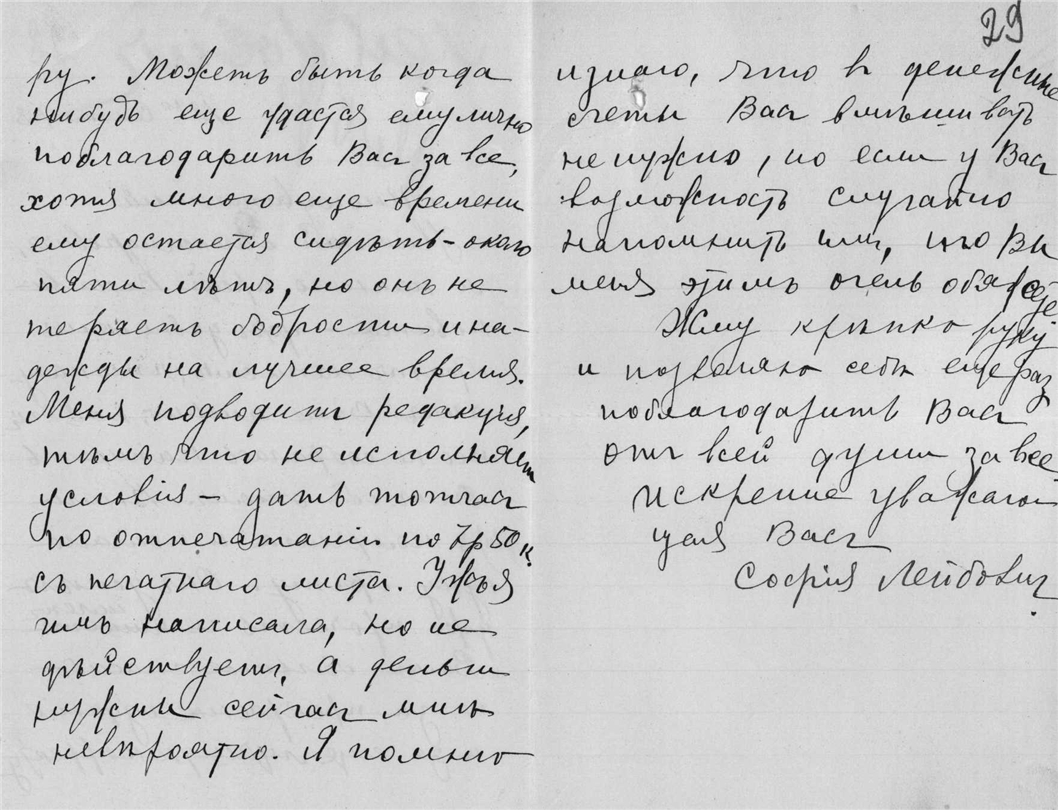 ру. Можетъ быть когда
нибудь еще удастся ему лично
поблагодарить Васъ за все,
хотя много еще времени
ему остается сидѣть - около
пяти лѣтъ, но онъ не
теряетъ бодрости и на-
дежды на лучшее время.
Меня подводитъ редакція,
тѣмъ что не исполняетъ
условія - дать тотчасъ
по отпечатаніи по 7р 50к.
съ печатнаго листа. Ужъ я
имъ написала, но не
дѣйствуетъ, а деньги
нужны сейчасъ мнѣ
невѣроятно. Я помню
29
и знаю, что въ денежные
счеты Васъ вмѣшивать
не нужно, но если у Васъ
возможность случайно
напомнить имъ, то Вы
меня этимъ очень обяжете.
Жму крѣпко руку
и позволяю себѣ еще раз
поблагодарить Васъ
отъ всей души за все.
Искренне уважаю
щая Васъ
Софія Лейбовичъ.